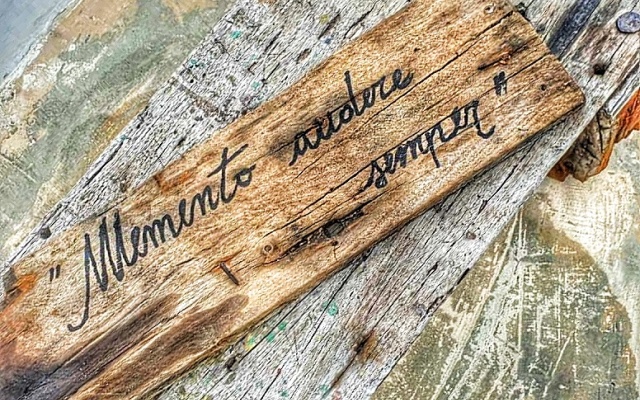 "Memento audere
semper"